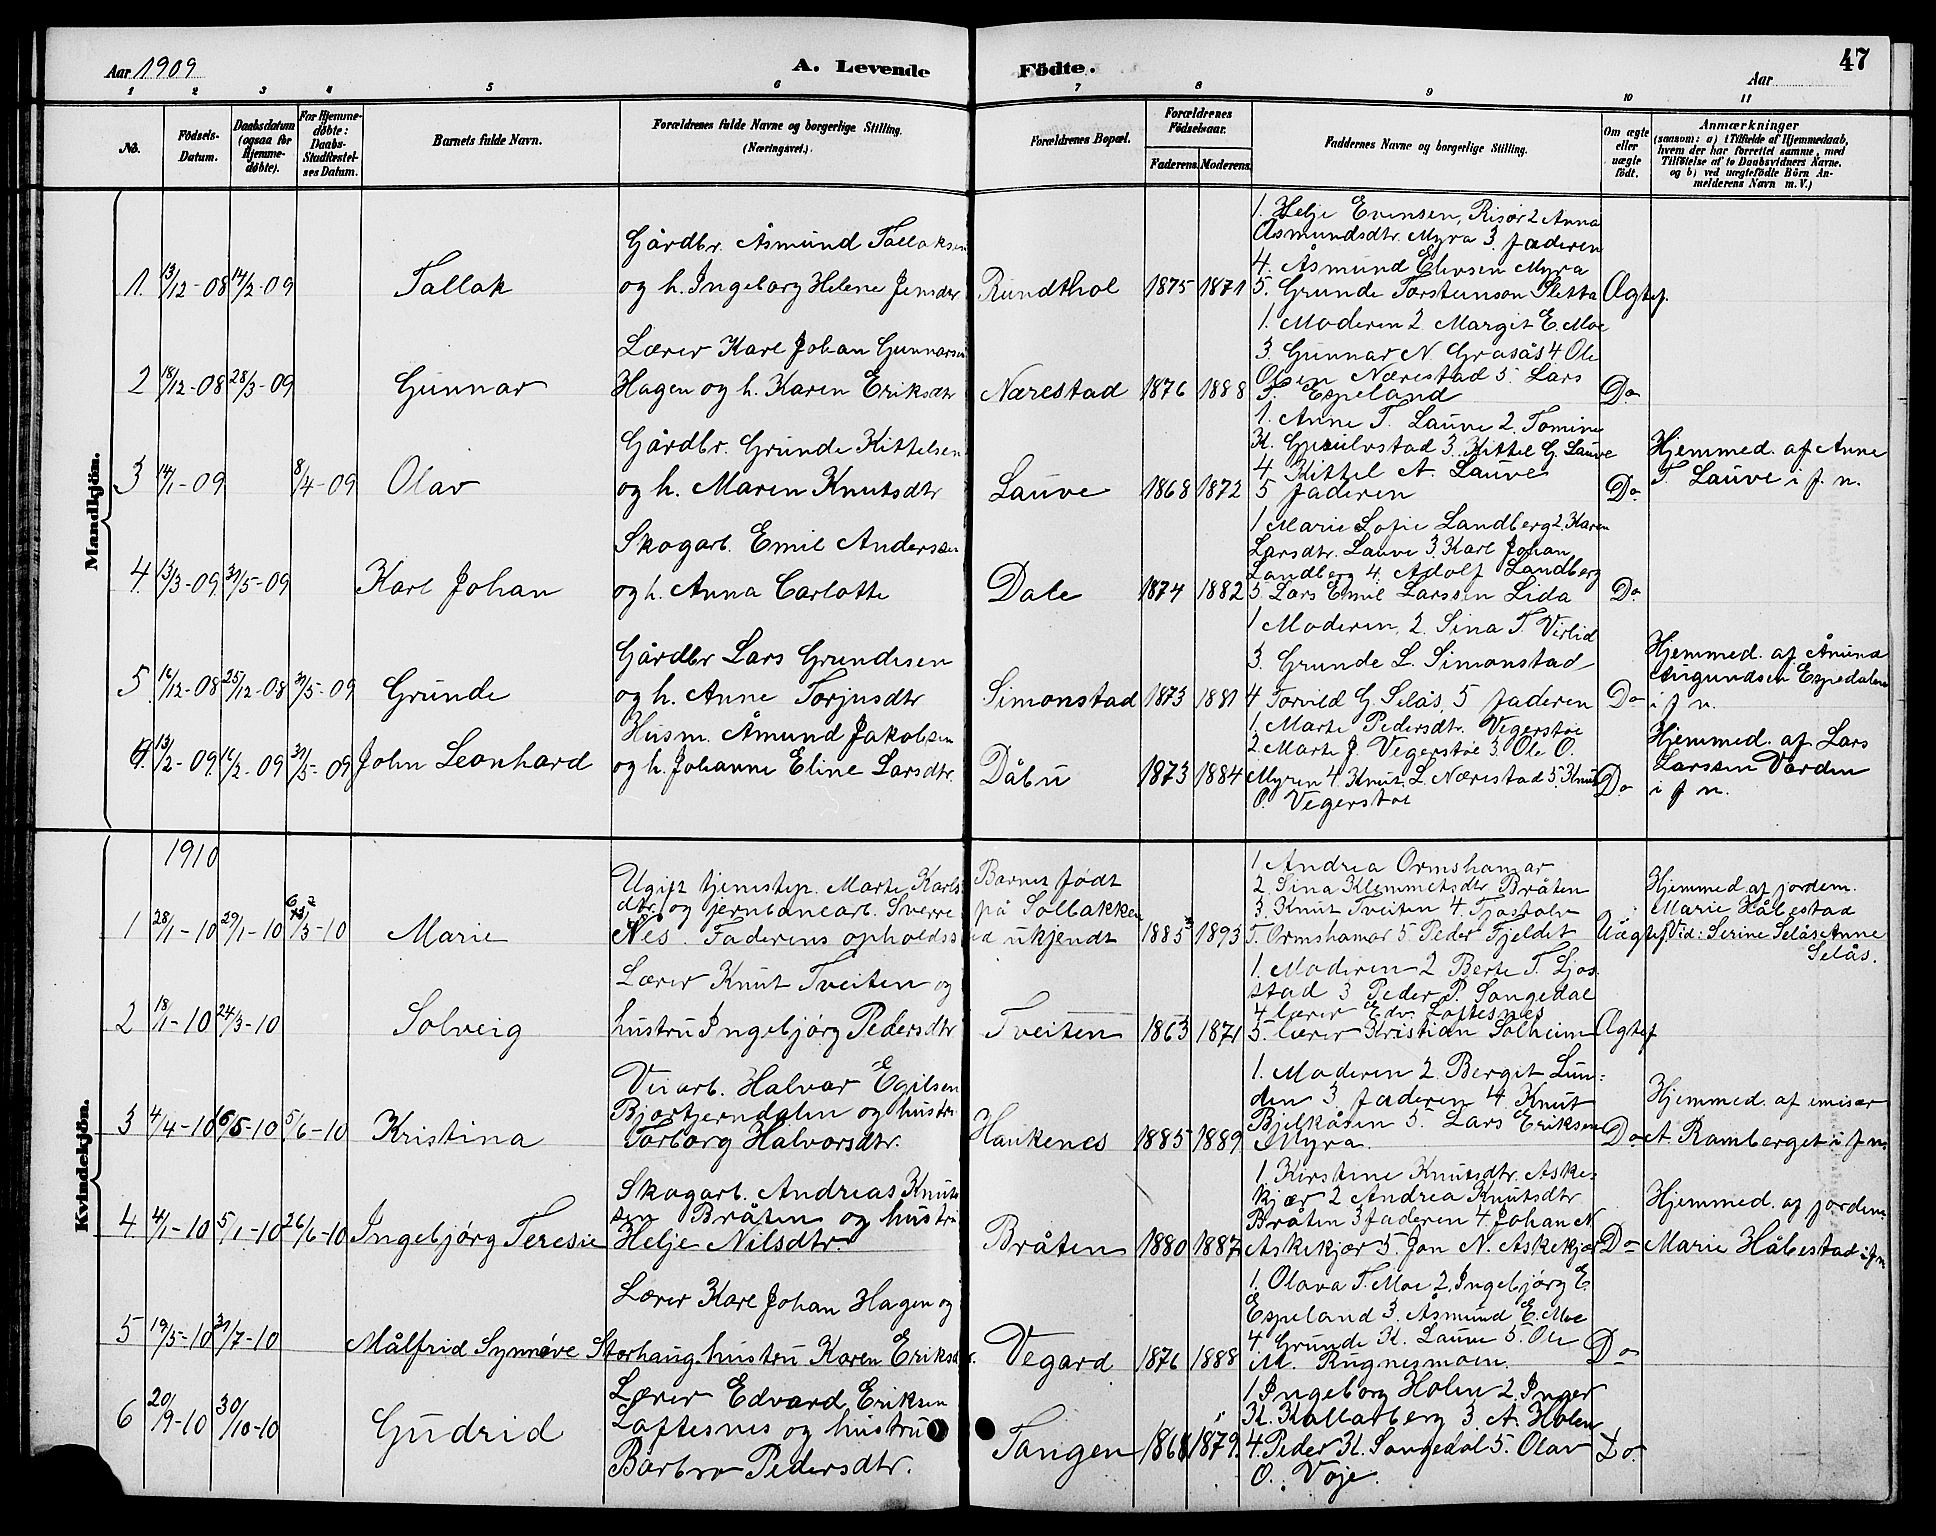 Aar 1909
A. Levende Födte.
Aar
47
1 2 3 4 5 6 7 8 9 10 11
No.
Födsels-Datum.
Daabsdatum (ogsaa for Hjemme-døbte).
For Hjemme-døbte: Daabs-Stadfæstel-ses Datum.
Barnets fulde Navn.
Forældrenes fulde Navne og borgerlige Stilling. (Næringsvei.)
Forældrenes Bopæl.
Forældrenes Födselsaar.
Faderens. Moderens.
Faddernes Navne og borgerlige Stilling.
Om ægte eller uægte födt.
Anmærkninger
(saasom: a) i Tilfælde af Hjemmedaab,
hvem der har forrettet samme, med
Tilföielse af to Daabsvidners Navne.
og b) ved uægtefödte Börn An-
melderens Navn m. V.)
Mandkjön.
1. 13/12-08 14/2-09 Tallak
Gårdbr. Åsmund Tallaksen
og h. Ingeborg Helene Jensdtr
Rundthol 1875 1871
1. Helje Evensen, Risör 2 Anna
Asmundsdtr. Myra 3. faderen
4. Åsmund Elivsen Myra
5. Grunde Torsteinson Sletta
Ægtef.
2 18/12-08 28/3-09 Gunnar
Lærer Karl Johan Gunnarsen
Hagen og h. Karen Eriksdtr
Nærestad 1876 1888
1. Moderen 2 Margit E. Moe
3. Gunnar N. Grasås 4 Ole
Olsen Nærestad 5. Lars
T. Espeland
Do
3 14/1-09 8/4-09 Olav
Gårdbr. Grunde Kittelsen
og h. Maren Knutsdtr
Lauve 1868 1872
1. Anne T. Lauve 2. Tomine
K. Gjeiulvstad 3. Kittel G. Lauve
4. Kittel A. Lauve
5 faderen
Do
Hjemmed. af Anne
T. Lauve i J. n.
4. 13/3-09 31/5-09 Karl Johan
Skogarb. Emil Anderssen
og h. Anna Carlotte
Dale 1874 1882
1 Marie Sofie Landberg 2. Karen
Larsdtr. Lauve 3. Karl Johan
Landberg 4. Adolf Landberg
5. Lars Emil Larssen Lida
Do
5. 16/12-08 25/12-08 31/5-09 Grunde
Gårdbr Lars Grundesen
og h. Anne Torjusdtr
Simonstad 1873 1881
1 Moderen, 2. Sina T. Virlid
3. Grunde L. Simonstad
4 Torvild G. Selås, 5 faderen
Do
Hjemmed. af Åmund
Augundsen Espedalen
i J n.
6. 13/2-09. 16/2-09 31/5-09 John Leonhard
Husm. Åmund Jakobsen
og h. Johanne Eline Larsdtr.
Dåbu 1873 1884
1. Marte Pedersdtr. Vegerstøe
2. Marte J. Vegerstøe 3. Ole O.
Myren 4. Knut L. Nærestad 5. Knut
O. Vegerstøe
Do
Hjemmed. af Lars
Larssen Varden
i J n.
Kvindekjön.
1910
1 28/1-10 29/1-10 6/3-10 Marie
Ugift tjenestep. Marte Karls
dtr. og jernbanearb. Sverre
Nes. Faderens opholdsst
ed ukjendt
Barnet født
på Solbakken
1885 1893
1 Andrea Ormshamar
2. Sina Klemmetsdtr. Bråten
3. Knut Tveiten 4. Tjostolv
T. Ormshamar 5 Peder Fjeldet
Uægtef.
Hjemmed. af jordem.
Marie Håbestad
Vid: Serine Selås Anne
Selås.
2 18/1-10 24/3-10 Solveig
Lærer Knut Tveiten og
hustru Ingebjørg Pedersdtr
Tveiten 1863 1871
1. Moderen 2 Berte T. Ljos
stad 3 Peder P. Songedal
4 lærer Edv. Loftesnes
5. lærer Kristian Solheim
Ægtef
3 4/4-10 16/5-10 5/6-10 Kristina
Veiarb. Halvar Egilsen
Bjortjerndalen og hustru
Torborg Halvorsdtr.
Haukenes 1885 1889
1. Moderen 2. Bergit Lun-
den 3. faderen 4. Knut
Bjelkåsen 5. Lars Eriksen
Myra.
Do
Hjemmed. af emisær
A. Ramberget i J n.
4. 4/1-10 5/1-10 26/6-10 Ingebjørg Teresie
Skogarb. Andreas Knut
sen Bråten og hustru
Helje Nilsdtr.
Bråten 1880 1887
1 Kirstine Knutsdtr. Aske-
kjær 2 Andrea Knutsdtr
Bråten 3 faderen 4. Johan N
Askekjær 5. Jon N. Askekjær
Do
Hjemmed. af jordem.
Marie Håbestad i J n
5 19/5-10 31/7-10 Målfrid Synnøve Storhaug
Lærer Karl Johan Hagen og
hustru Karen Eriksdtr.
Vegard 1876 1888
1. Olava T. Moe 2. Ingebjørg E.
Espeland 3. Åsmund E. Moe
4 Grunde K. Lauve 5. Ole
M. Rugnesmoen.
Do
6 20/9-10 30/10-10 Gudrid
Lærer Edvard Eriksen
Loftesnes og hustru
Barbro Pedersdtr.
Tangen 1868 1879.
1 Ingeborg Holen 2. Inger
K. Kallarberg 3. A. Holen
4. Peder K. Songedal 5. Olav
O. Voje.
Do.